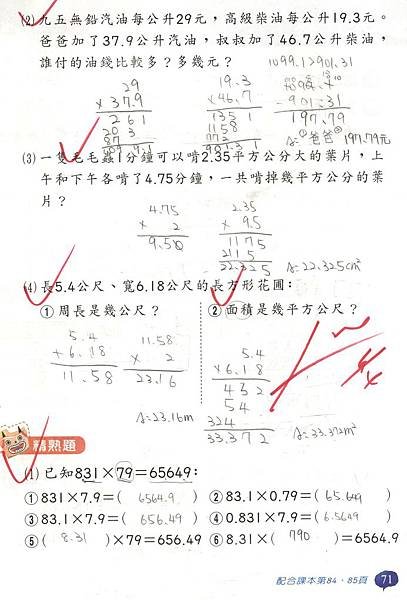 (2)九五無鉛汽油每公升29元，高級柴油每公升19.3元。
爸爸加了37.9公升汽油，叔叔加了46.7公升柴油，
誰付的油錢比較多？多幾元？
1099.1>901.31
29
× 37.9
261
203
87
1099.1
19.3
× 46.7
1351
1158
772
901.31
1099.1
- 901.31
197.79
A:①爸爸②197.79元
(3)一隻毛毛蟲1分鐘可以啃2.35平方公分大的葉片，上
午和下午各啃了4.75分鐘，一共啃掉幾平方公分的葉
片？
4.75
× 2
9.50
2.35
× 9.5
1175
2115
22.325
A=22.325cm²
(4)長5.4公尺、寬6.18公尺的長方形花圃：
①周長是幾公尺？
②面積是幾平方公尺？
5.4
+ 6.18
11.58
11.58
× 2
23.16
A=23.16m
5.4
× 6.18
432
54
324
33.372
A=33.372m²
精熟題
(1)已知831×79＝65649：
①831×7.9＝( 6564.9 )
②83.1×0.79＝( 65.649 )
③83.1×7.9＝( 656.49 )
④0.831×7.9＝( 6.5649 )
⑤( 8.31 )×79＝656.49
⑥8.31×( 790 )＝6564.9
配合課本第84、85頁
71